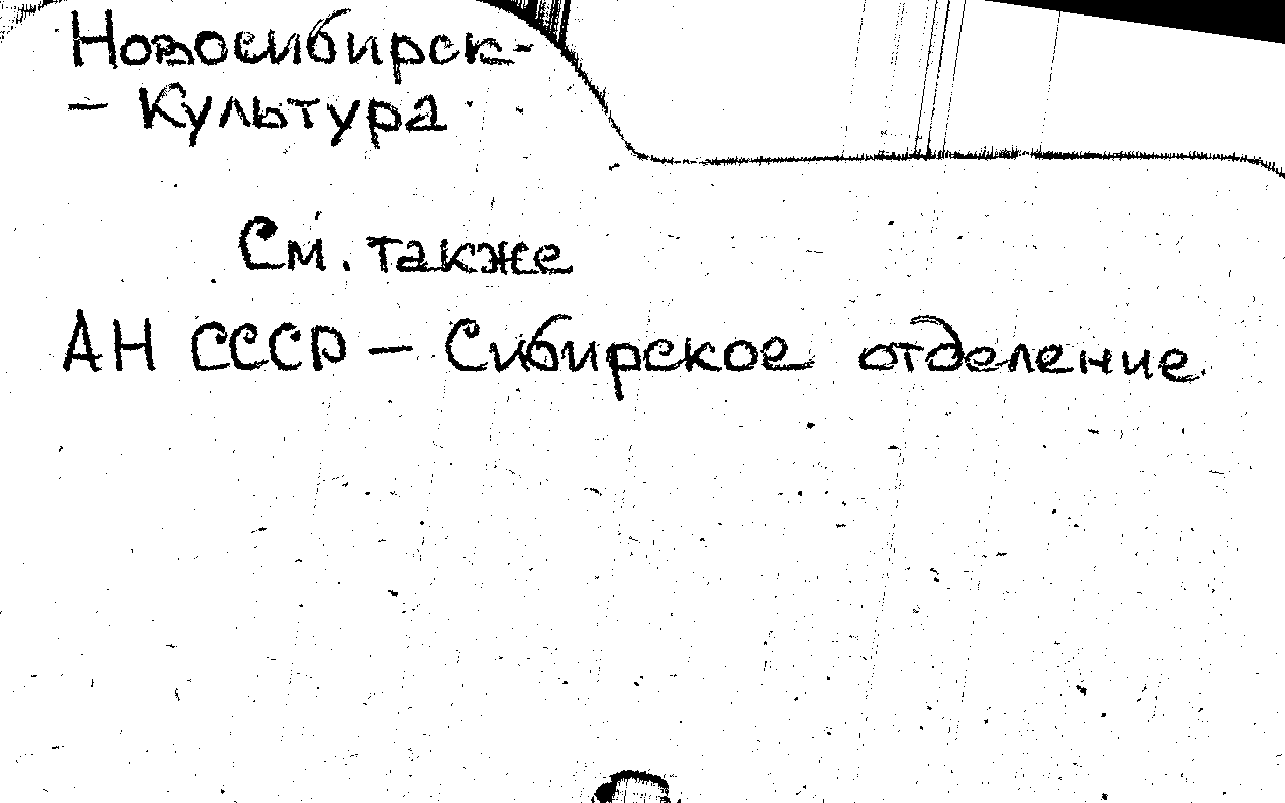 Новосибирск-
- Культура
См. также
АН СССР - Сибирское отделение